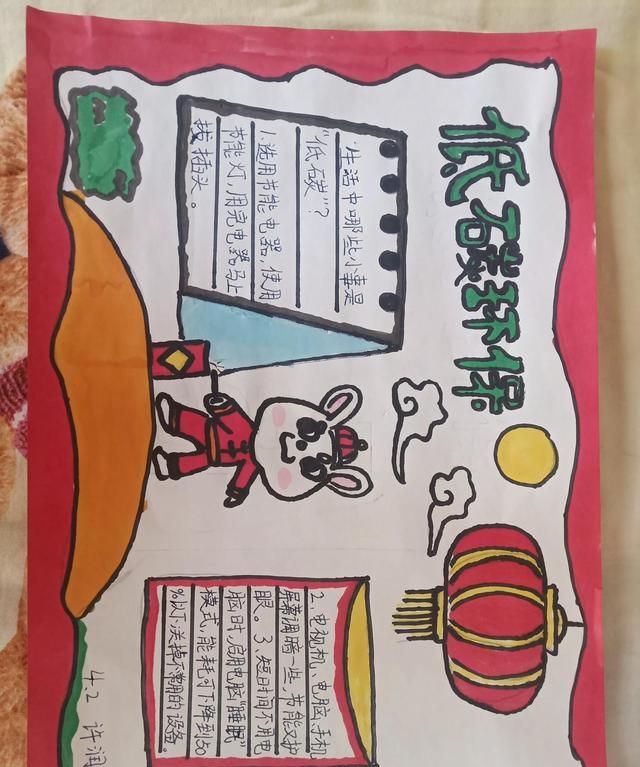 低碳环保
生活中哪些小事是
"低碳"?
1.选用节能电器,使用
节能灯,用完电器马上
拔插头。
2、电视机、电脑、手机
屏幕调暗一些,节能又护
眼。3、短时间不用电
脑时,启用电脑"睡眠"
模式,能耗可下降到50
%以下;关掉不常用的设备。
4.2 许润